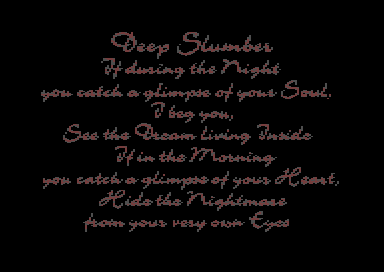 Deep Slumber
If during the Night
you catch a glimpse of your Soul,
I beg you,
See the Dream living Inside
If in the Morning
you catch a glimpse of your Heart,
Hide the Nightmare
from your very own Eyes